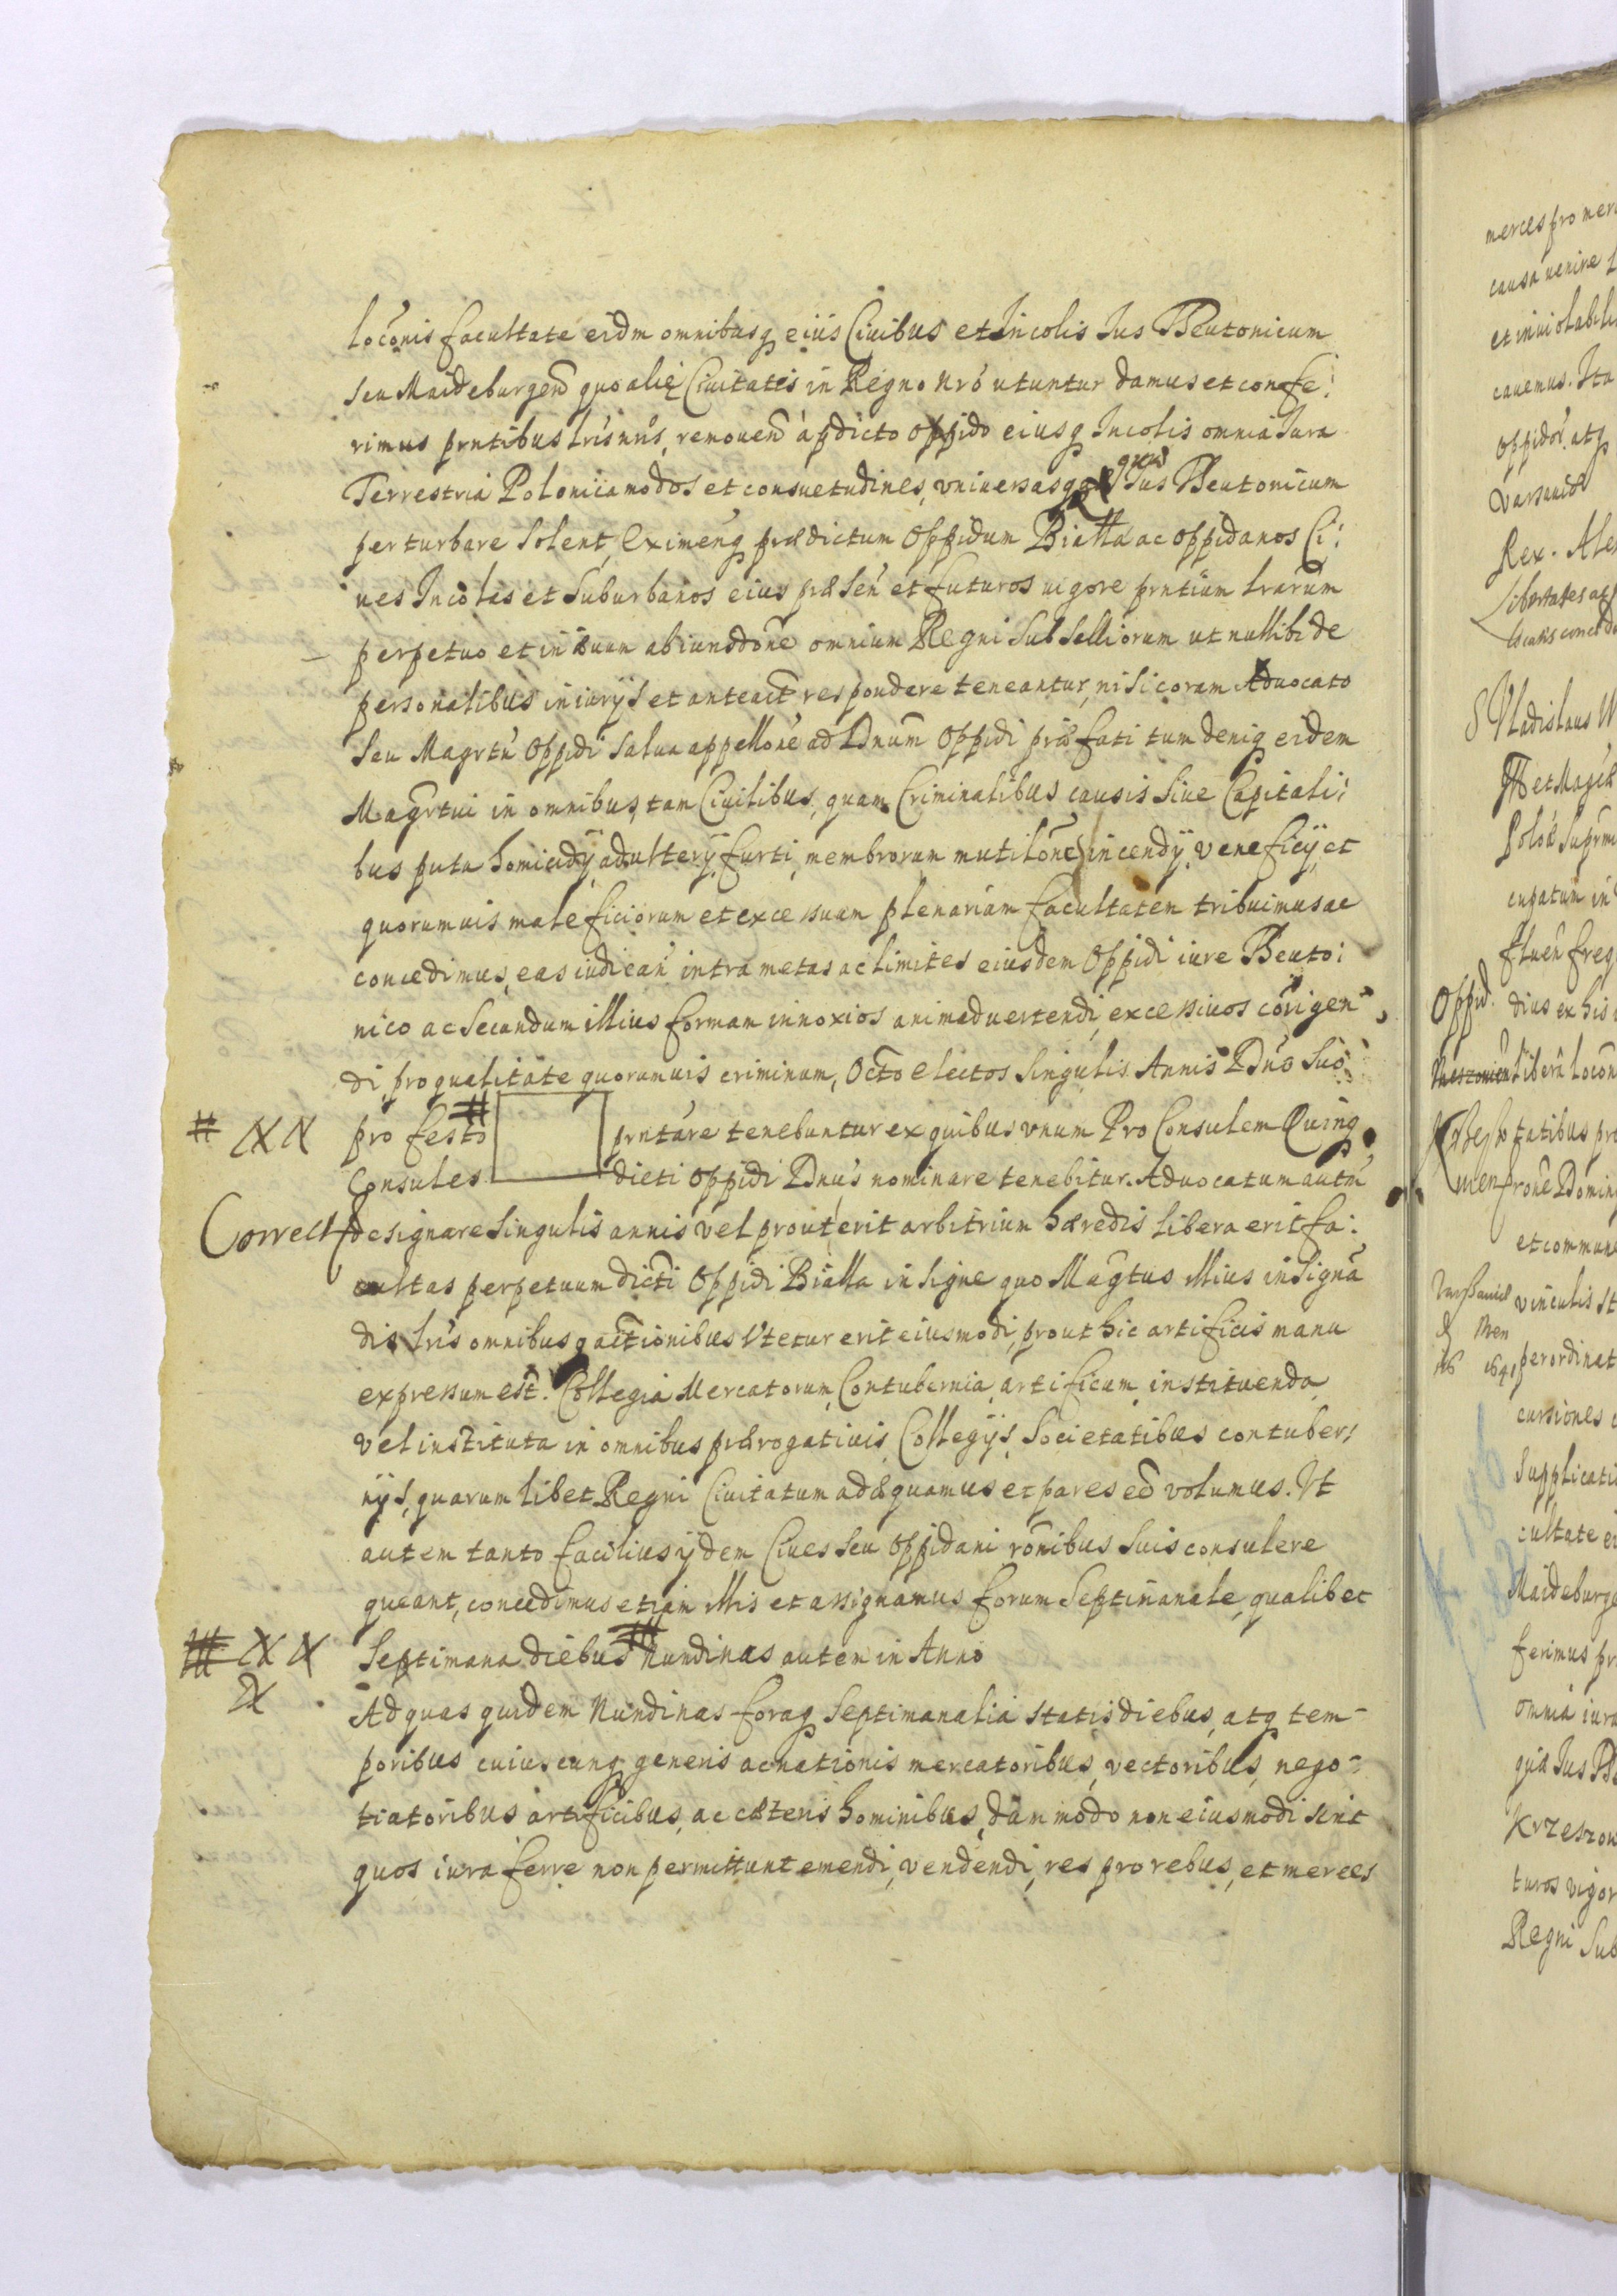 loconis facultate eidm omnibusq eius Ciuibus et Incolis Ius Theutonicum
seu Maideburgen quo alię Ciuitates in Regno nro utuntur damus et confe:
rimus prntibus lris nris, remouen a pdicto oppido eiusq Incolis omnia Iura
Terrestria Polonica modos et consuetudines, vniuersasq quæ Ius Theutonicum
perturbare solent, Eximenq prædictum Oppidum Bialla ac oppidanos Ci:
ues Incolas et Suburbanos eius præsen et futuros uigore prntium lrarum
perpetuo et in æuum ab iurisdone omnium Regni Subselliorum ut nullibi de
personalibus iniurijs et anteact respondere teneantur, nisi coram Aduocato
seu Magrtu Oppidi salua appellone ad Dnum Oppidi præfati tum deniq eidem
Magrtui in omnibus, tam Ciuilibus, quam Criminalibus causis siue Capitali:
bus puta homicidij, adulterij, furti, membrorum mutilone, incendij, veneficij et
quorumuis maleficiorum et excessuum plenariam facultatem tribuimus ac
concedimus, eas iudican intra metas ac limites eiusdem Oppidi iure Theuto:
nico ac secundum illius formam innoxios animaduertendi, excessiuos corigen
di, pro qualitate quorumuis criminum, Octo electos singulis Annis Dno suo
# XX pro festo # prntare tenebuntur ex quibus vnum Pro Consulem Quinq
Consules dicti oppidi Dnus nominare tenebitur. Aduocatum autm
Correct designare singulis annis vel prout erit arbitrium hæredis libera erit fa:
cultas perpetuum dicti Oppidi Bialla insigne quo Magtus illius insignā
dis lris omnibusq actionibus Vtetur erit eiusmodi, prout hic artificis manu
expressum est. Collegia Mercatorum, Contubernia, artificum, instituenda
vel instituta in omnibus prærogatiuis Collegijs, Societatibus contuber:
nijs, quarumlibet Regni Ciuitatum adæquamus et pares ee volumus. Vt
autem tanto facilius ijdem Ciues seu Oppidani ronibus suis consulere
queant, concedimus etiam illis et assignamus forum Septimanale, qualibet
XX Septimana diebus # Nundinas autem in Anno
X Ad quas quidem Nundinas foraq Septimanalia statis diebus, atq tem-
poribus cuiuscunq generis ac nationis mercatoribus, vectoribus, nego-
tiatoribus artificibus, ac cæteris hominibus, dummodo non eiusmodi sint
quos iura ferre non permittunt emendi, vendendi, res pro rebus, et merces
merces pro mer
causa venire
et inuiolabili
cauemus. Ita
oppidor. atq
Varsauiæ
Rex.
Libertates
Vladislaus
Oppid. dius ex his
libera locon
tatibus
Domin
et commun
vinculis
perordinat
cursiones
Supplicati
cultate ei
Maideburge
ferimus pr
omnia iura
quæ Ius
Krzeszow
turos vigor
Regni Sub